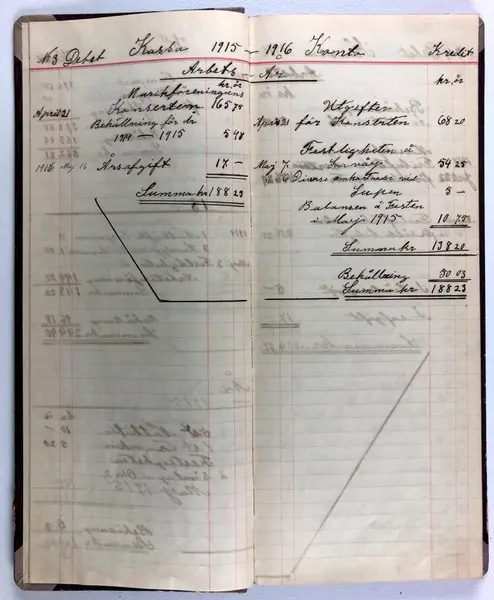 №3 Debet Kassa 1915 — 1916 Konto Kredit
Arbets — År
kr, ör
Musikföreningens
April 21 Konsertem 165 75
Behållning för år
1914 — 1915 5 48
1916 Maj 15 Årsafgift 17 —
Summa kr 188 23
kr, ör
Utgifter
April 21 för Konsterten 68 20
Festligheten å
Maj 7. 54 25
Diverse omkostnader vid
Supen 5 —
Balansen å Festen
i Maj 1915 10 75
Summa kr 138 20
Behållning 50 03
Summa kr 188 23